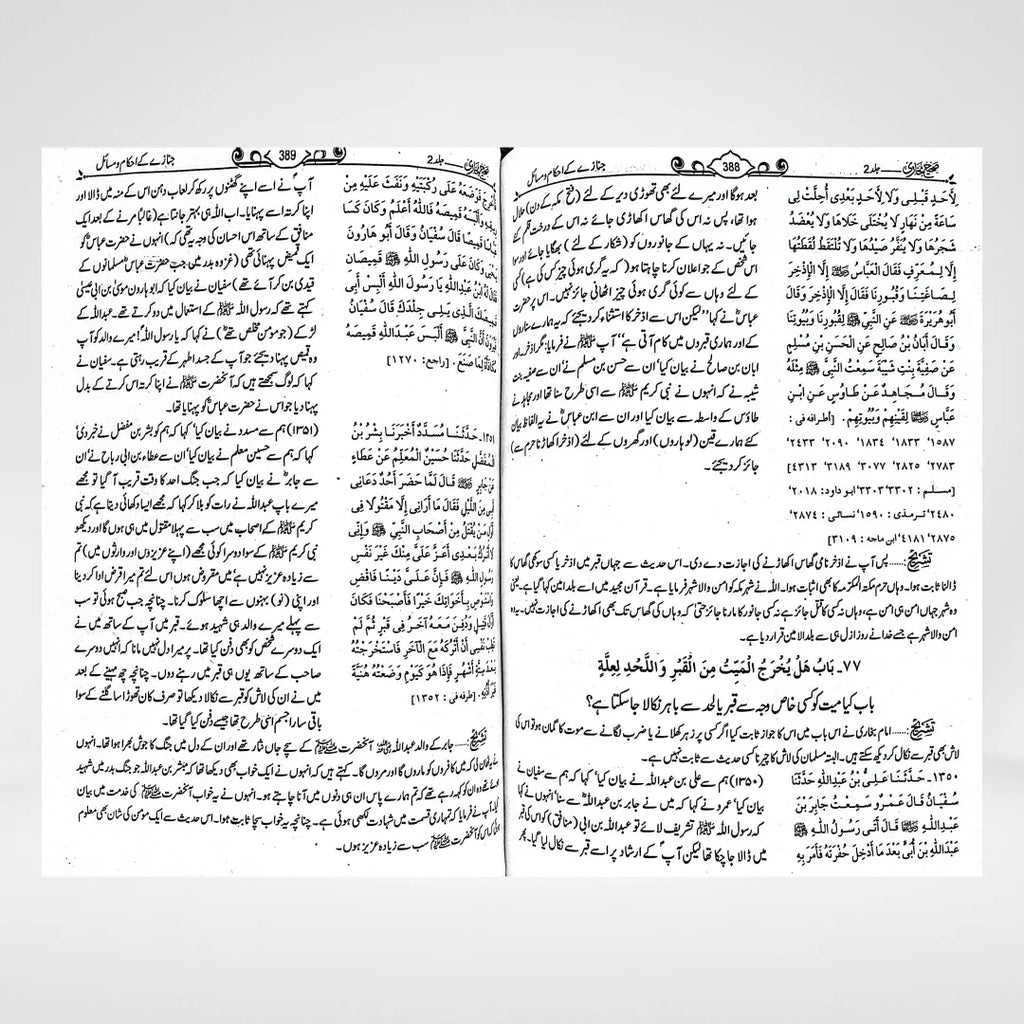 صحیح بخاری جلد 2 388 جنازے کے احکام و مسائل
لِأَحَدٍ قَبْلِي وَلَا لِأَحَدٍ بَعْدِي أُحِلَّتْ لِي
سَاعَةً مِنْ نَهَارٍ لَا يُخْتَلَى خَلَاهَا وَلَا يُعْضَدُ
شَجَرُهَا وَلَا يُنَفَّرُ صَيْدُهَا وَلَا تُلْتَقَطُ لُقَطَتُهَا
إِلَّا لِمُعَرِّفٍ فَقَالَ الْعَبَّاسُ ﷺ إِلَّا الْإِذْخِرَ
لِصَاغَتِنَا وَقُبُورِنَا فَقَالَ إِلَّا الْإِذْخِرَ وَقَالَ
أَبُو هُرَيْرَةَ ﷺ عَنِ النَّبِيِّ ﷺ لِقُبُورِنَا وَبُيُوتِنَا
وَقَالَ أَبَانُ بْنُ صَالِحٍ عَنِ الْحَسَنِ بْنِ مُسْلِمٍ
عَنْ صَفِيَّةَ بِنْتِ شَيْبَةَ سَمِعْتُ النَّبِيَّ ﷺ مِثْلَهُ
وَقَالَ مُجَاهِدٌ عَنْ طَاوُسٍ عَنِ ابْنِ
عَبَّاسٍ ﷺ لِقَيْنِهِمْ وَبُيُوتِهِمْ. [أطرافه في :
١٥٨٧' ١٨٣٣' ١٨٣٤' ٢٠٩٠' ٢٤٣٣'
٢٧٨٣' ٢٨٢٥' ٣٠٧٧' ٣١٨٩' ٤٣١٣]
[مسلم : ٣٣٠٢'٣٣٠٣ ابو داود: ٢٠١٨'
٢٤٨٠' ترمذی : ١٥٩٠' نسائی : ٢٨٧٤'
٢٨٧٥' ٤١٨١' ابن ماجه : ٣١٠٩]
بعد ہوگا اور میرے لئے بھی تھوڑی دیر کے لئے (فتح مکہ کے دن) حلال
ہوا تھا، پس نہ اس کی گھاس اکھاڑی جائے نہ اس کے درخت قلم کئے
جائیں۔ نہ یہاں کے جانوروں کو (شکار کے لئے) بھگایا جائے اور سوا
اس شخص کے جو اعلان کرنا چاہتا ہو (کہ یہ گری ہوئی چیز کس کی ہے) کسی
کے لئے وہاں سے کوئی گری ہوئی چیز اٹھانی جائز نہیں۔ اس پر حضرت
عباسؓ نے کہا "لیکن اس سے اذخر کا استثناء کر دیجئے کہ یہ ہمارے سناروں
کے اور ہماری قبروں میں کام آتی ہے" آپ ﷺ نے فرمایا: مگر اذخر اور
ابان بن صالح نے بیان کیا' ان سے حسن بن مسلم نے' ان سے صفیہ بنت
شیبہ نے کہ انہوں نے نبی کریم ﷺ سے اسی طرح سنا تھا اور مجاہد نے
طاؤس کے واسطہ سے بیان کیا اور ان سے ابن عباسؓ نے یہ الفاظ بیان
کئے ہمارے قین (لوہاروں) اور گھروں کے لئے (اذخر اکھاڑنا حرم سے)
جائز کر دیجئے۔
تشریح:..... پس آپ نے اذخر نامی گھاس اکھاڑنے کی اجازت دے دی۔ اس حدیث سے جہاں قبر میں اذخر یا کسی سوکھی گھاس کا
ڈالنا ثابت ہوا۔ وہاں حرم مکۃ المکرمہ کا بھی اثبات ہوا۔ اللہ نے شہر مکہ کو امن والا شہر فرمایا ہے۔ قرآن مجید میں اسے بلد امین کہا گیا ہے۔ یعنی
وہ شہر جہاں امن ہی امن ہے، وہاں نہ کسی کا قتل جائز ہے نہ کسی جانور کا مارنا جائز حتیٰ کہ وہاں کی گھاس تک بھی اکھاڑنے کی اجازت نہیں۔ یہ وہ
امن والا شہر ہے جسے خدا نے روز ازل ہی سے بلد الامین قرار دیا ہے۔
٧٧۔ بَابُ هَلْ يُخْرَجُ الْمَيِّتُ مِنَ الْقَبْرِ وَاللَّحْدِ لِعِلَّةٍ
باب کیا میت کو کسی خاص وجہ سے قبر یا لحد سے باہر نکالا جا سکتا ہے؟
تشریح:..... امام بخاری نے اس باب میں اس کا جواز ثابت کیا اگر کسی پر زہر کھلانے یا ضرب لگانے سے موت کا گمان ہو تو اس کی
لاش بھی قبر سے نکال کر دیکھ سکتے ہیں۔ البتہ مسلمان کی لاش کا چیرنا کسی حدیث سے ثابت نہیں ہے۔
١٣٥٠۔ حَدَّثَنَا عَلِيُّ بْنُ عَبْدِاللهِ حَدَّثَنَا
سُفْيَانُ قَالَ عَمْرٌو سَمِعْتُ جَابِرَ بْنَ
عَبْدِاللهِ ﷺ قَالَ أَتَى رَسُولُ اللهِ ﷺ
عَبْدَاللهِ بْنَ أُبَيٍّ بَعْدَ مَا أُدْخِلَ حُفْرَتَهُ فَأَمَرَ بِهِ
(۱۳۵۰) ہم سے علی بن عبداللہ نے بیان کیا' کہا کہ ہم سے سفیان نے
بیان کیا' عمرو نے کہا کہ میں نے جابر بن عبداللہؓ سے سنا' انہوں نے کہا
کہ رسول اللہ ﷺ تشریف لائے تو عبداللہ بن ابی (منافق) کو اس کی قبر
میں ڈالا جا چکا تھا لیکن آپؐ کے ارشاد پر اسے قبر سے نکال لیا گیا۔ پھر
صحیح بخاری جلد 2 389 جنازے کے احکام و مسائل
فَأُخْرِجَ فَوَضَعَهُ عَلَى رُكْبَتَيْهِ وَنَفَثَ عَلَيْهِ مِنْ
رِيقِهِ وَأَلْبَسَهُ قَمِيصَهُ فَاللهُ أَعْلَمُ وَكَانَ كَسَا
عَبَّاسًا قَمِيصًا قَالَ سُفْيَانُ وَقَالَ أَبُو هَارُونَ
يَحْيَى وَكَانَ عَلَى رَسُولِ اللهِ ﷺ قَمِيصَانِ
فَقَالَ لَهُ ابْنُ عَبْدِاللهِ يَا رَسُولَ اللهِ أَلْبِسْ أَبِي
قَمِيصَكَ الَّذِي يَلِي جِلْدَكَ قَالَ سُفْيَانُ
فَيُرَوْنَ أَنَّ النَّبِيَّ ﷺ أَلْبَسَ عَبْدَاللهِ قَمِيصَهُ
مُكَافَأَةً لِمَا صَنَعَ. [راجع: ١٢٧٠]
١٣٥١۔ حَدَّثَنَا مُسَدَّدٌ أَخْبَرَنَا بِشْرُ بْنُ
الْمُفَضَّلِ حَدَّثَنَا حُسَيْنٌ الْمُعَلِّمُ عَنْ عَطَاءٍ
عَنْ جَابِرٍ ﷺ قَالَ لَمَّا حَضَرَ أُحُدٌ دَعَانِي
أَبِي مِنَ اللَّيْلِ فَقَالَ مَا أُرَانِي إِلَّا مَقْتُولًا فِي
أَوَّلِ مَنْ يُقْتَلُ مِنْ أَصْحَابِ النَّبِيِّ ﷺ وَإِنِّي
لَا أَتْرُكُ بَعْدِي أَعَزَّ عَلَيَّ مِنْكَ غَيْرَ نَفْسِ
رَسُولِ اللهِ ﷺ فَإِنَّ عَلَيَّ دَيْنًا فَاقْضِ
وَاسْتَوْصِ بِأَخَوَاتِكَ خَيْرًا فَأَصْبَحْنَا فَكَانَ
أَوَّلَ قَتِيلٍ وَدُفِنَ مَعَهُ آخَرُ فِي قَبْرٍ ثُمَّ لَمْ
تَطِبْ نَفْسِي أَنْ أَتْرُكَهُ مَعَ الْآخَرِ فَاسْتَخْرَجْتُهُ
بَعْدَ سِتَّةِ أَشْهُرٍ فَإِذَا هُوَ كَيَوْمِ وَضَعْتُهُ هُنَيَّةً
غَيْرَ أُذُنِهِ. [طرفه في : ١٣٥٢]
آپؐ نے اسے اپنے گھٹنوں پر رکھ کر لعاب دہن اس کے منہ میں ڈالا اور
اپنا کرتہ اسے پہنایا۔ اب اللہ ہی بہتر جانتا ہے (غالباً مرنے کے بعد ایک
منافق کے ساتھ اس احسان کی وجہ یہ تھی کہ) انہوں نے حضرت عباسؓ کو
ایک قمیض پہنائی تھی (غزوہ بدر میں جب حضرت عباسؓ مسلمانوں کے
قیدی بن کر آئے تھے) سفیان نے بیان کیا کہ ابو ہارون موسیٰ بن ابی عیسیٰ
کہتے تھے کہ رسول اللہ ﷺ کے استعمال میں دو کرتے تھے۔ عبداللہ کے
لڑکے (جو مومن مخلص تھے) نے کہا کہ یا رسول اللہ! میرے والد کو آپ
وہ قمیض پہنا دیجئے جو آپ کے جسد اطہر کے قریب رہتی ہے۔ سفیان نے
کہا کہ لوگ سمجھتے ہیں کہ آنحضرت ﷺ نے اپنا کرتہ اس کرتے کے بدل
پہنا دیا جو اس نے حضرت عباسؓ کو پہنایا تھا۔
(۱۳۵۱) ہم سے مسدد نے بیان کیا' کہا کہ ہم کو بشر بن مفضل نے خبر دی'
کہا کہ ہم سے حسین معلم نے بیان کیا' ان سے عطاء بن ابی رباح نے' ان
سے جابرؓ نے بیان کیا کہ جب جنگ احد کا وقت قریب آ گیا تو مجھے
میرے باپ عبداللہ نے رات کو بلا کر کہا کہ مجھے ایسا دکھائی دیتا ہے کہ نبی
کریم ﷺ کے اصحاب میں سب سے پہلا مقتول میں ہی ہوں گا اور دیکھو
نبی کریم ﷺ کے سوا دوسرا کوئی مجھے (اپنے عزیزوں اور وارثوں میں) تم
سے زیادہ عزیز نہیں ہے' میں مقروض ہوں اس لئے تم میرا قرض ادا کر دینا
اور اپنی (نو) بہنوں سے اچھا سلوک کرنا۔ چنانچہ جب صبح ہوئی تو سب
سے پہلے میرے والد ہی شہید ہوئے۔ قبر میں آپ کے ساتھ میں نے
ایک دوسرے شخص کو بھی دفن کیا تھا۔ پر میرا دل نہیں مانا کہ انہیں دوسرے
صاحب کے ساتھ یوں ہی قبر میں رہنے دوں۔ چنانچہ چھ مہینے کے بعد
میں نے ان کی لاش کو قبر سے نکالا دیکھا تو صرف کان تھوڑا سا گلنے کے سوا
باقی سارا جسم اسی طرح تھا جیسے دفن کیا گیا تھا۔
تشریح:..... جابر کے والد عبداللہؓ آنحضرت ﷺ کے سچے جاں نثار تھے اور ان کے دل میں جنگ کا جوش بھرا ہوا تھا۔ انہوں
نے یہ ٹھان لی کہ میں کافروں کو ماروں گا اور مروں گا۔ کہتے ہیں کہ انہوں نے ایک خواب بھی دیکھا تھا کہ مبشر بن عبداللہ جو جنگ بدر میں شہید
ہوئے تھے وہ ان کو کہہ رہے تھے کہ تم ہمارے پاس ان ہی دنوں میں آنا چاہتے ہو۔ انہوں نے یہ خواب آنحضرت ﷺ کی خدمت میں بیان
کیا۔ آپ نے فرمایا کہ تمہاری قسمت میں شہادت لکھی ہوئی ہے۔ چنانچہ یہ خواب سچا ثابت ہوا۔ اس حدیث سے ایک مومن کی شان بھی معلوم
ہوئی کہ اس کو آنحضرت ﷺ سب سے زیادہ عزیز ہوں۔